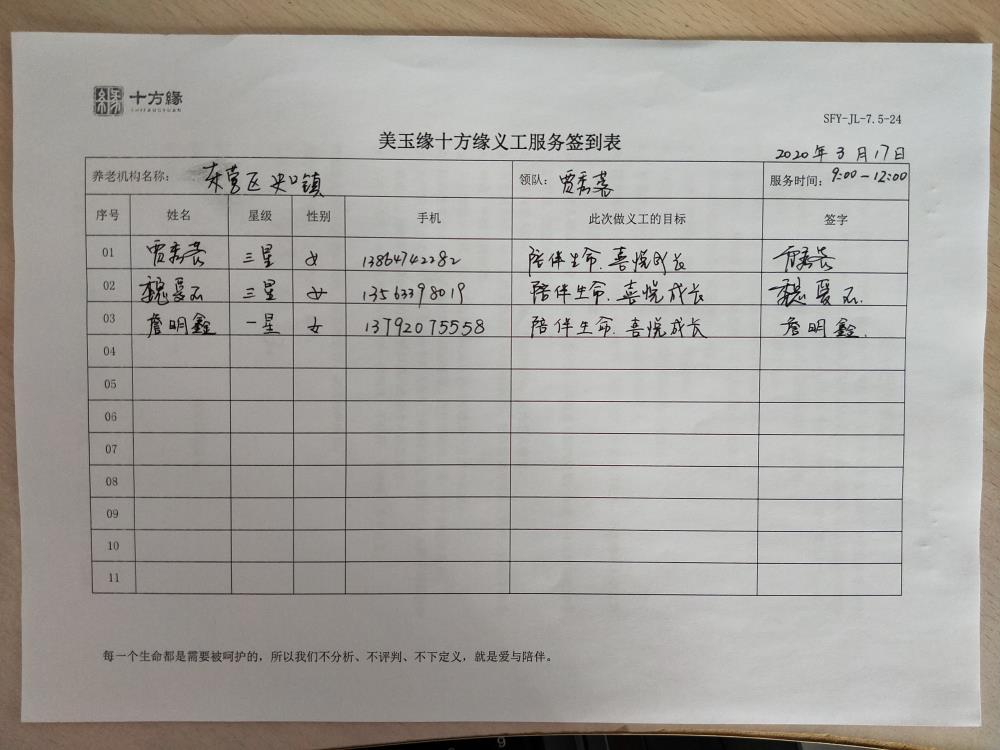 十方緣
SHIFANGYUAN
SFY-JL-7.5-24
美玉缘十方缘义工服务签到表
2020年3月17日
养老机构名称: 东营区史口镇 领队: 贾秀蓉 服务时间: 9:00-12:00
序号 姓名 星级 性别 手机 此次做义工的目标 签字
01 贾秀蓉 三星 女 13864742282 陪伴生命.喜悦成长 贾秀蓉
02 魏夏石 三星 女 13563398019 陪伴生命.喜悦成长 魏夏石.
03 詹明鑫 一星 女 13792075558 陪伴生命.喜悦成长 詹明鑫.
04
05
06
07
08
09
10
11
每一个生命都是需要被呵护的，所以我们不分析、不评判、不下定义，就是爱与陪伴。